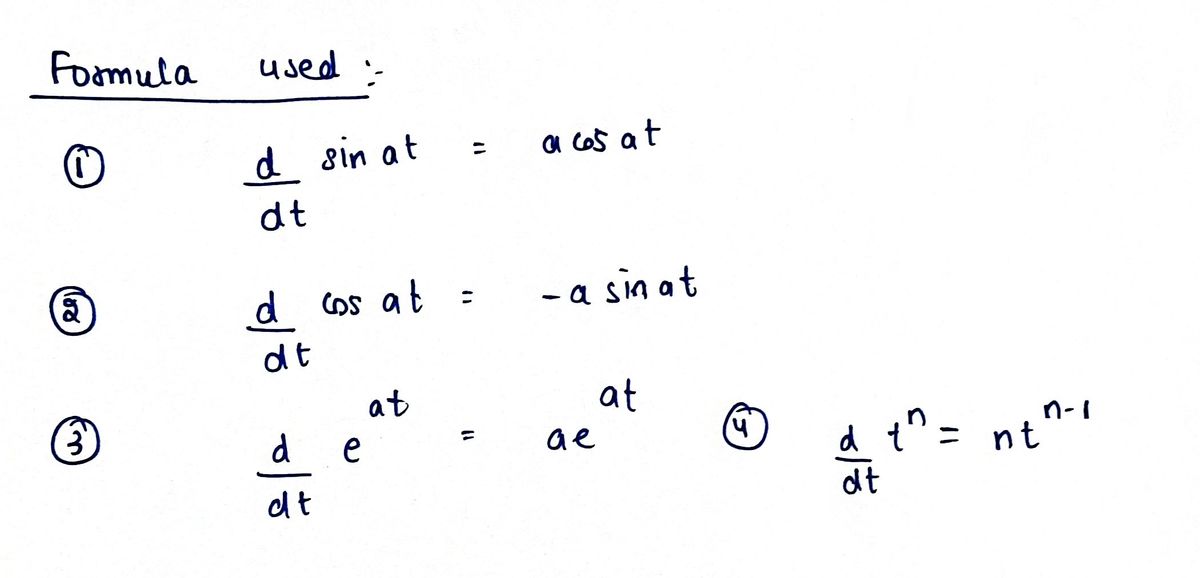 Formula used :-
① d/dt sin at = a cos at
② d/dt cos at = -a sin at
③ d/dt e^at = ae^at ④ d/dt t^n = nt^n-1